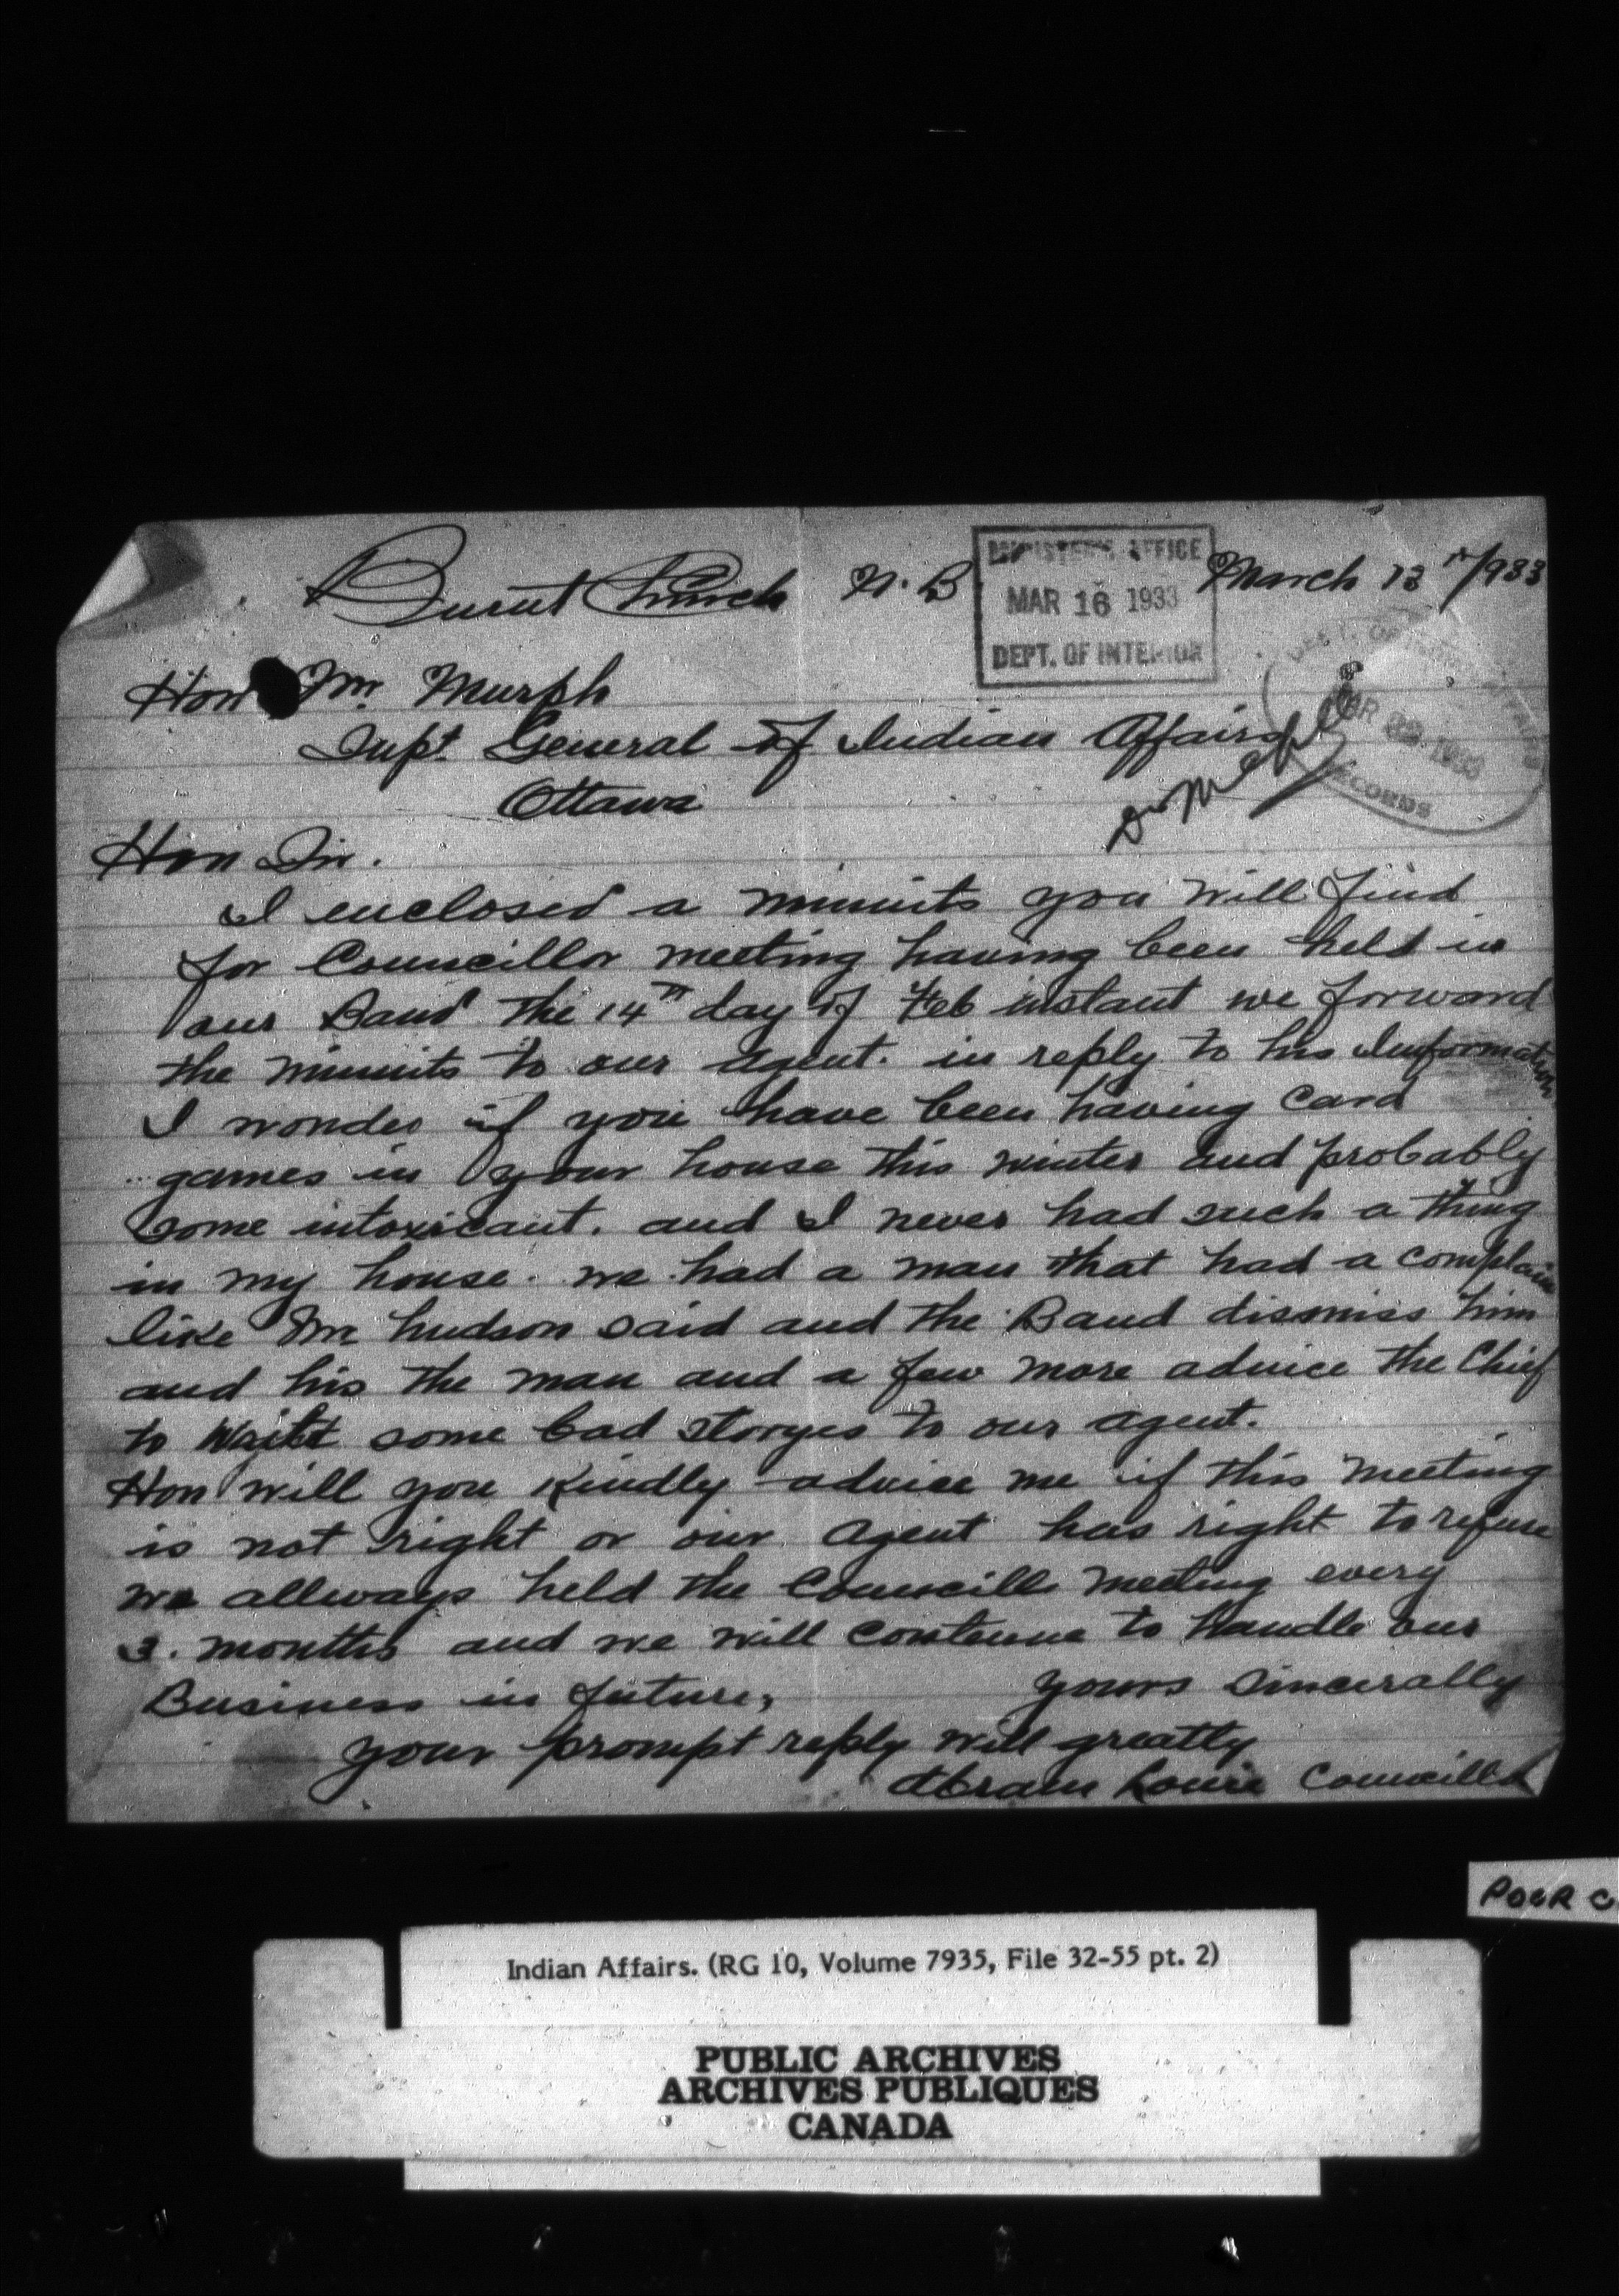 Burnt Church N.B March 13th/1933
MINISTER'S OFFICE
MAR 16 1933
DEPT. OF INTERIOR
Hon Mr. Murph
Supt. General of Indian Affairs
Ottawa
RECORDS
Hon Sir.
I enclosed a minuits you will find
for Councillor meeting having been held in
our Band the 14th day of Feb instant we forward
the minuits to our agent. in reply to his Information
I wonder if you have been having Card
games in your house this winter and probably
some intoxicant. and I never had such a thing
in my house. we had a man that had a complain
like Mr hudson said and the Band dismiss him
and his the man and a few more advice the Chief
to some bad storyes to our agent.
Hon will you Kindly advice me if this meeting
is not right or our agent has right to refuse
we allways held the Councill meeting every
3. months and we will contenue to handle our
Business in future, yours Sincerally
your prompt reply will greatly
Abram Louie Councillor
POOR C
Indian Affairs. (RG 10, Volume 7935, File 32-55 pt. 2)
PUBLIC ARCHIVES
ARCHIVES PUBLIQUES
CANADA